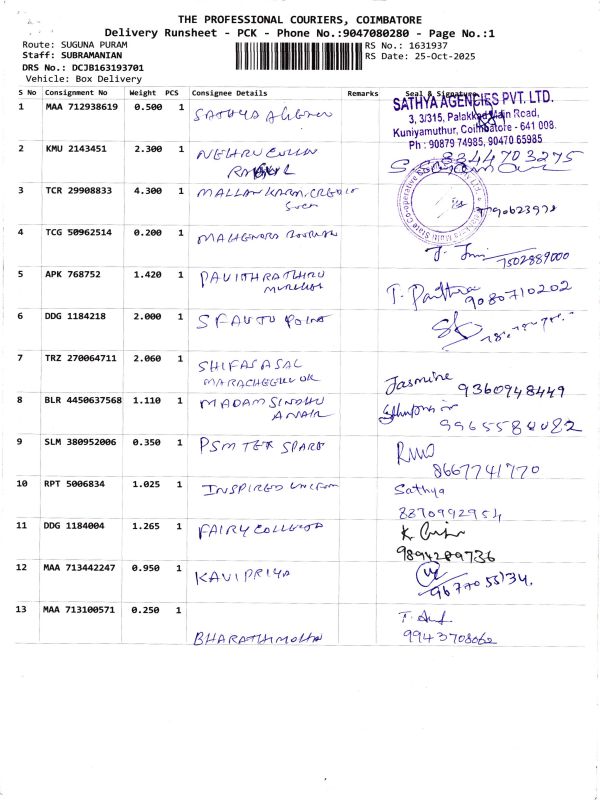 THE PROFESSIONAL COURIERS, COIMBATORE
Delivery Runsheet - PCK - Phone No.:9047080280 - Page No.:1
Route: SUGUNA PURAM RS No.: 1631937
Staff: SUBRAMANIAN RS Date: 25-Oct-2025
DRS No.: DCJB163193701
Vehicle: Box Delivery
S No Consignment No Weight PCS Consignee Details Remarks Seal & Signature
SATHYA AGENCIES PVT. LTD.
3, 3/315, Palakkad Main Road,
Kuniyamuthur, Coimbatore - 641 008.
Ph : 90879 74985, 90470 65985
1 MAA 712938619 0.500 1 SATHYA
2 KMU 2143451 2.300 1 NEHRU
8344703275
3 TCR 29908833 4.300 1 MALLANKARA CREDIT
4 TCG 50962514 0.200 1 MAHENDRA
7502889000
5 APK 768752 1.420 1 PAVITHRA THRU
T. Pavithra 9080710202
6 DDG 1184218 2.000 1 SF AUTO POINT
7 TRZ 270064711 2.060 1 SHIFASASAL
Jasmine 9360948449
8 BLR 4450637568 1.110 1 MADAM SINDHU
NAIR
9 SLM 380952006 0.350 1 PSM TEX SPARE
8667741770
10 RPT 5006834 1.025 1 INSPIRED UNIFORM
Sathya
11 DDG 1184004 1.265 1 FAIRY
9894289736
12 MAA 713442247 0.950 1 KAVIPRIYA
13 MAA 713100571 0.250 1
BHARATHIMOHAN
9943708062